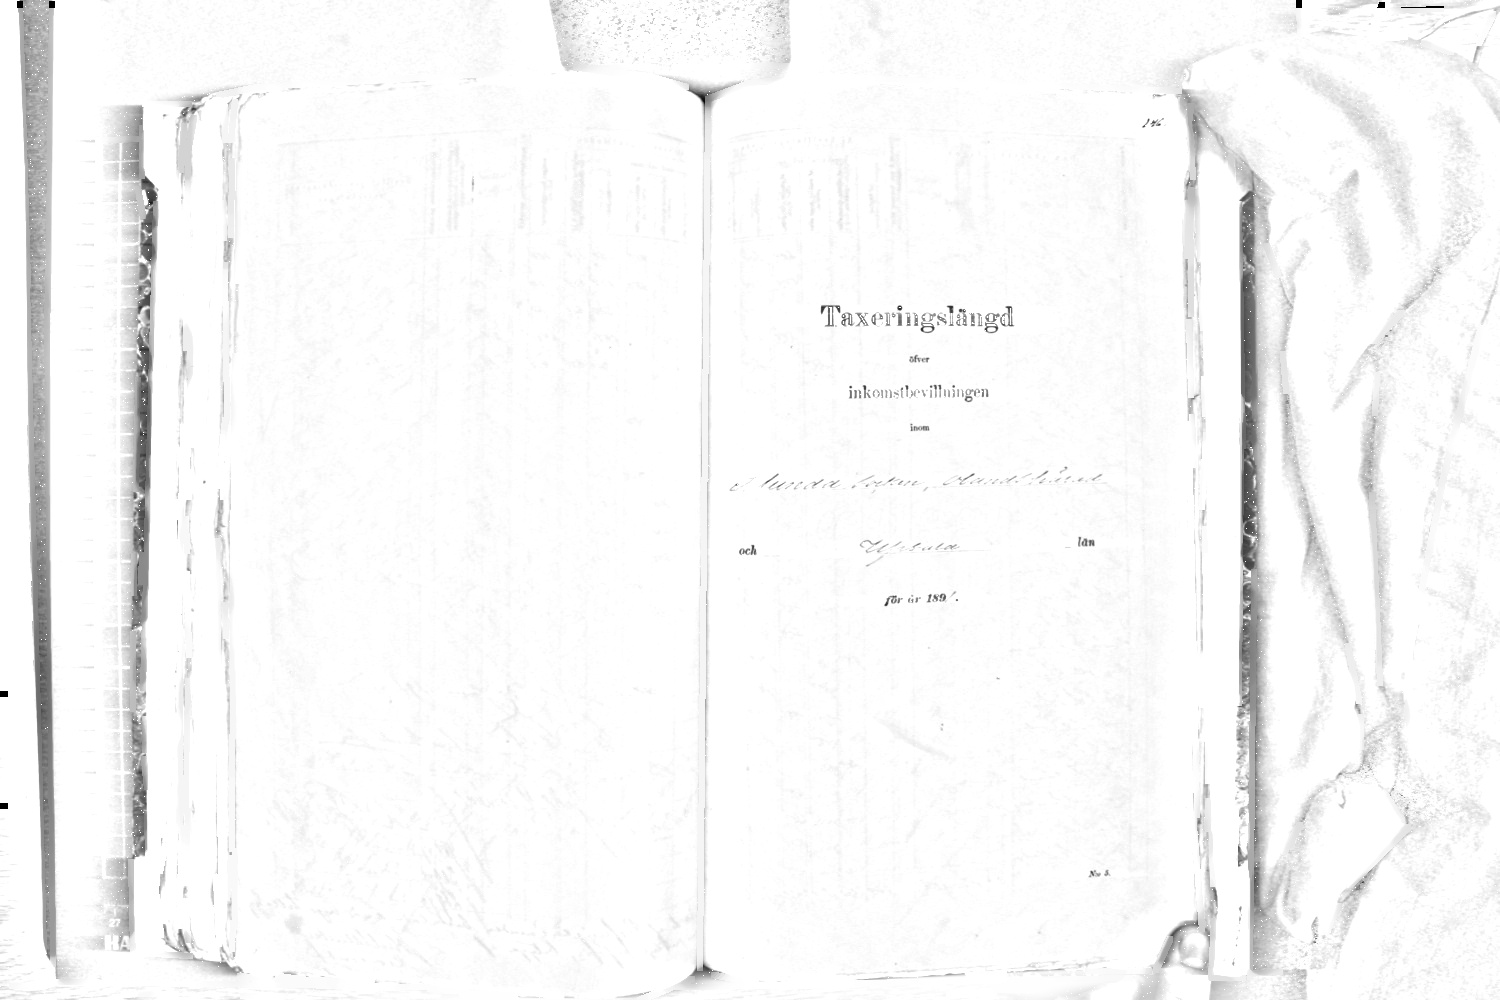 146.
Taxeringslängd
öfver
inkomstbevillningen
inom
Almunda Socken, Olands härad
och Upsala län
för år 1891.
N:o 5.
27